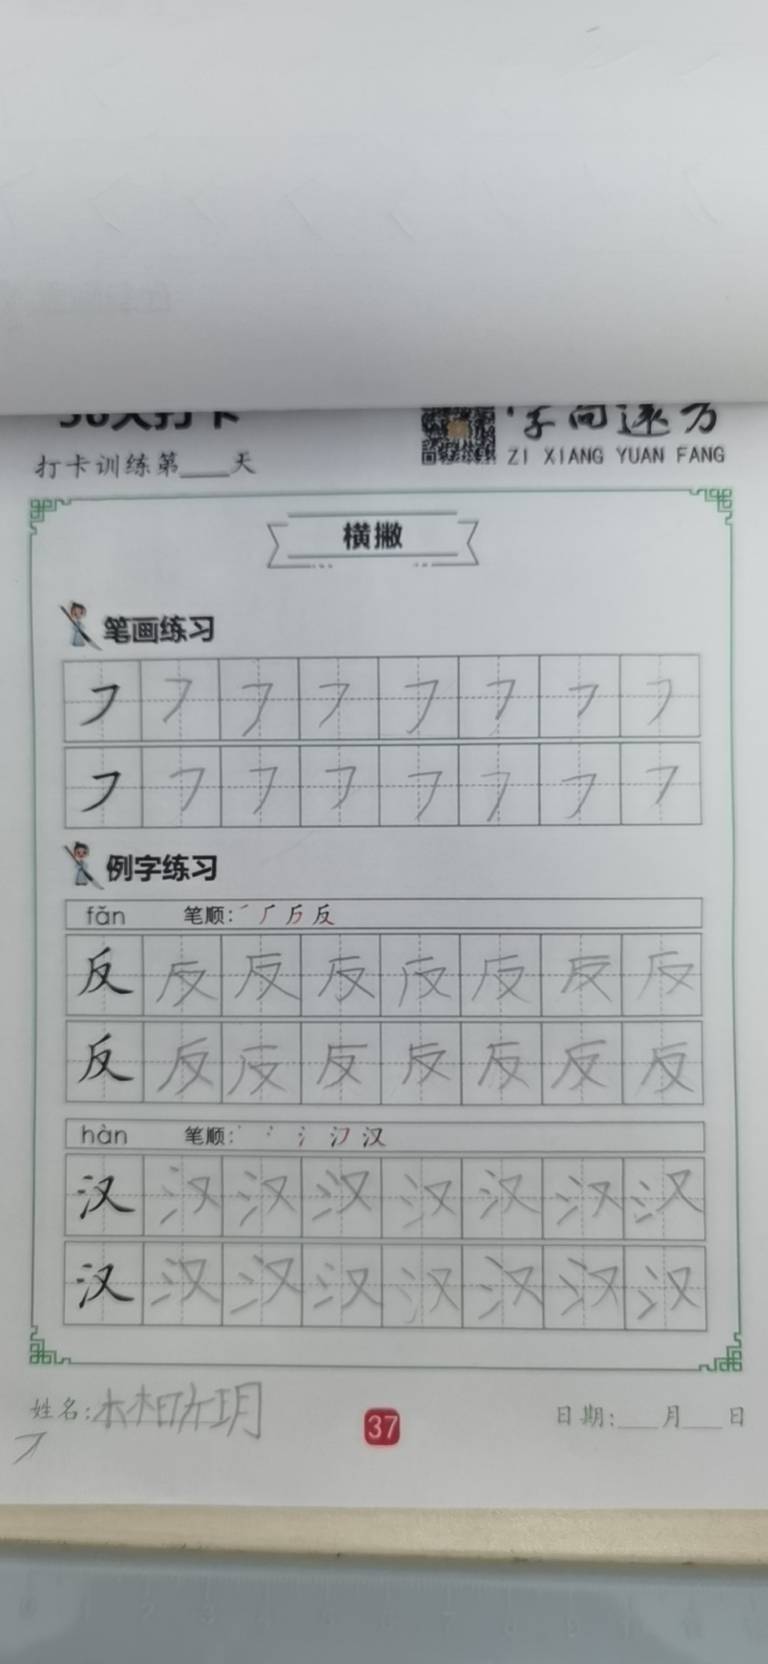 30天打卡
字向远方
打卡训练第___天
ZI XIANG YUAN FANG
横撇
笔画练习
㇇ ㇇ ㇇ ㇇ ㇇ ㇇ ㇇ ㇇
㇇ ㇇ ㇇ ㇇ ㇇ ㇇ ㇇ ㇇
例字练习
fǎn 笔顺: 反
反 反 反 反 反 反 反 反
反 反 反 反 反 反 反 反
hàn 笔顺: 汉
汉 汉 汉 汉 汉 汉 汉 汉
汉 汉 汉 汉 汉 汉 汉 汉
姓名:
37
日期:___月___日
㇇